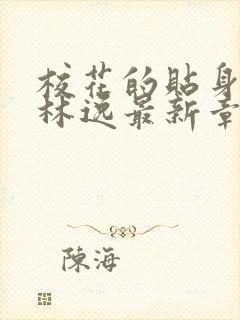 校花的貼身
林逸最新章
陳海